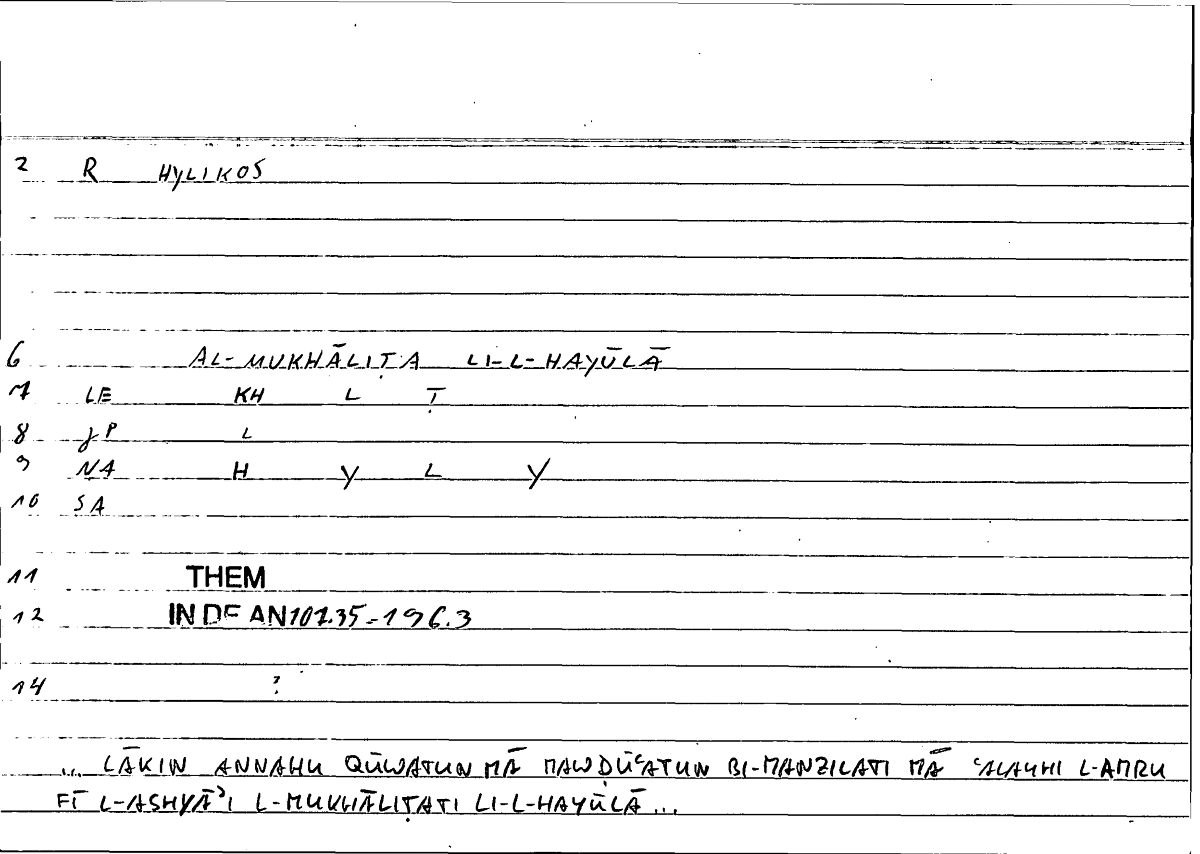 2 R HYLIKOS
6 AL-MUKHĀLIṬA LI-L-HAYŪLĀ
7 LE KH L Ṭ
8 JP L
9 NA H Y L Y
10 SA
11 THEM
12 IN DE AN 101.35-196.3
14 ?
... LĀKIN ANNAHU QŪWATUN MĀ MAWDŪʿATUN BI-MANZILATI MĀ ʿALAYHI L-AMRU
FĪ L-ASHYĀʾI L-MUKHĀLIṬATI LI-L-HAYŪLĀ ...